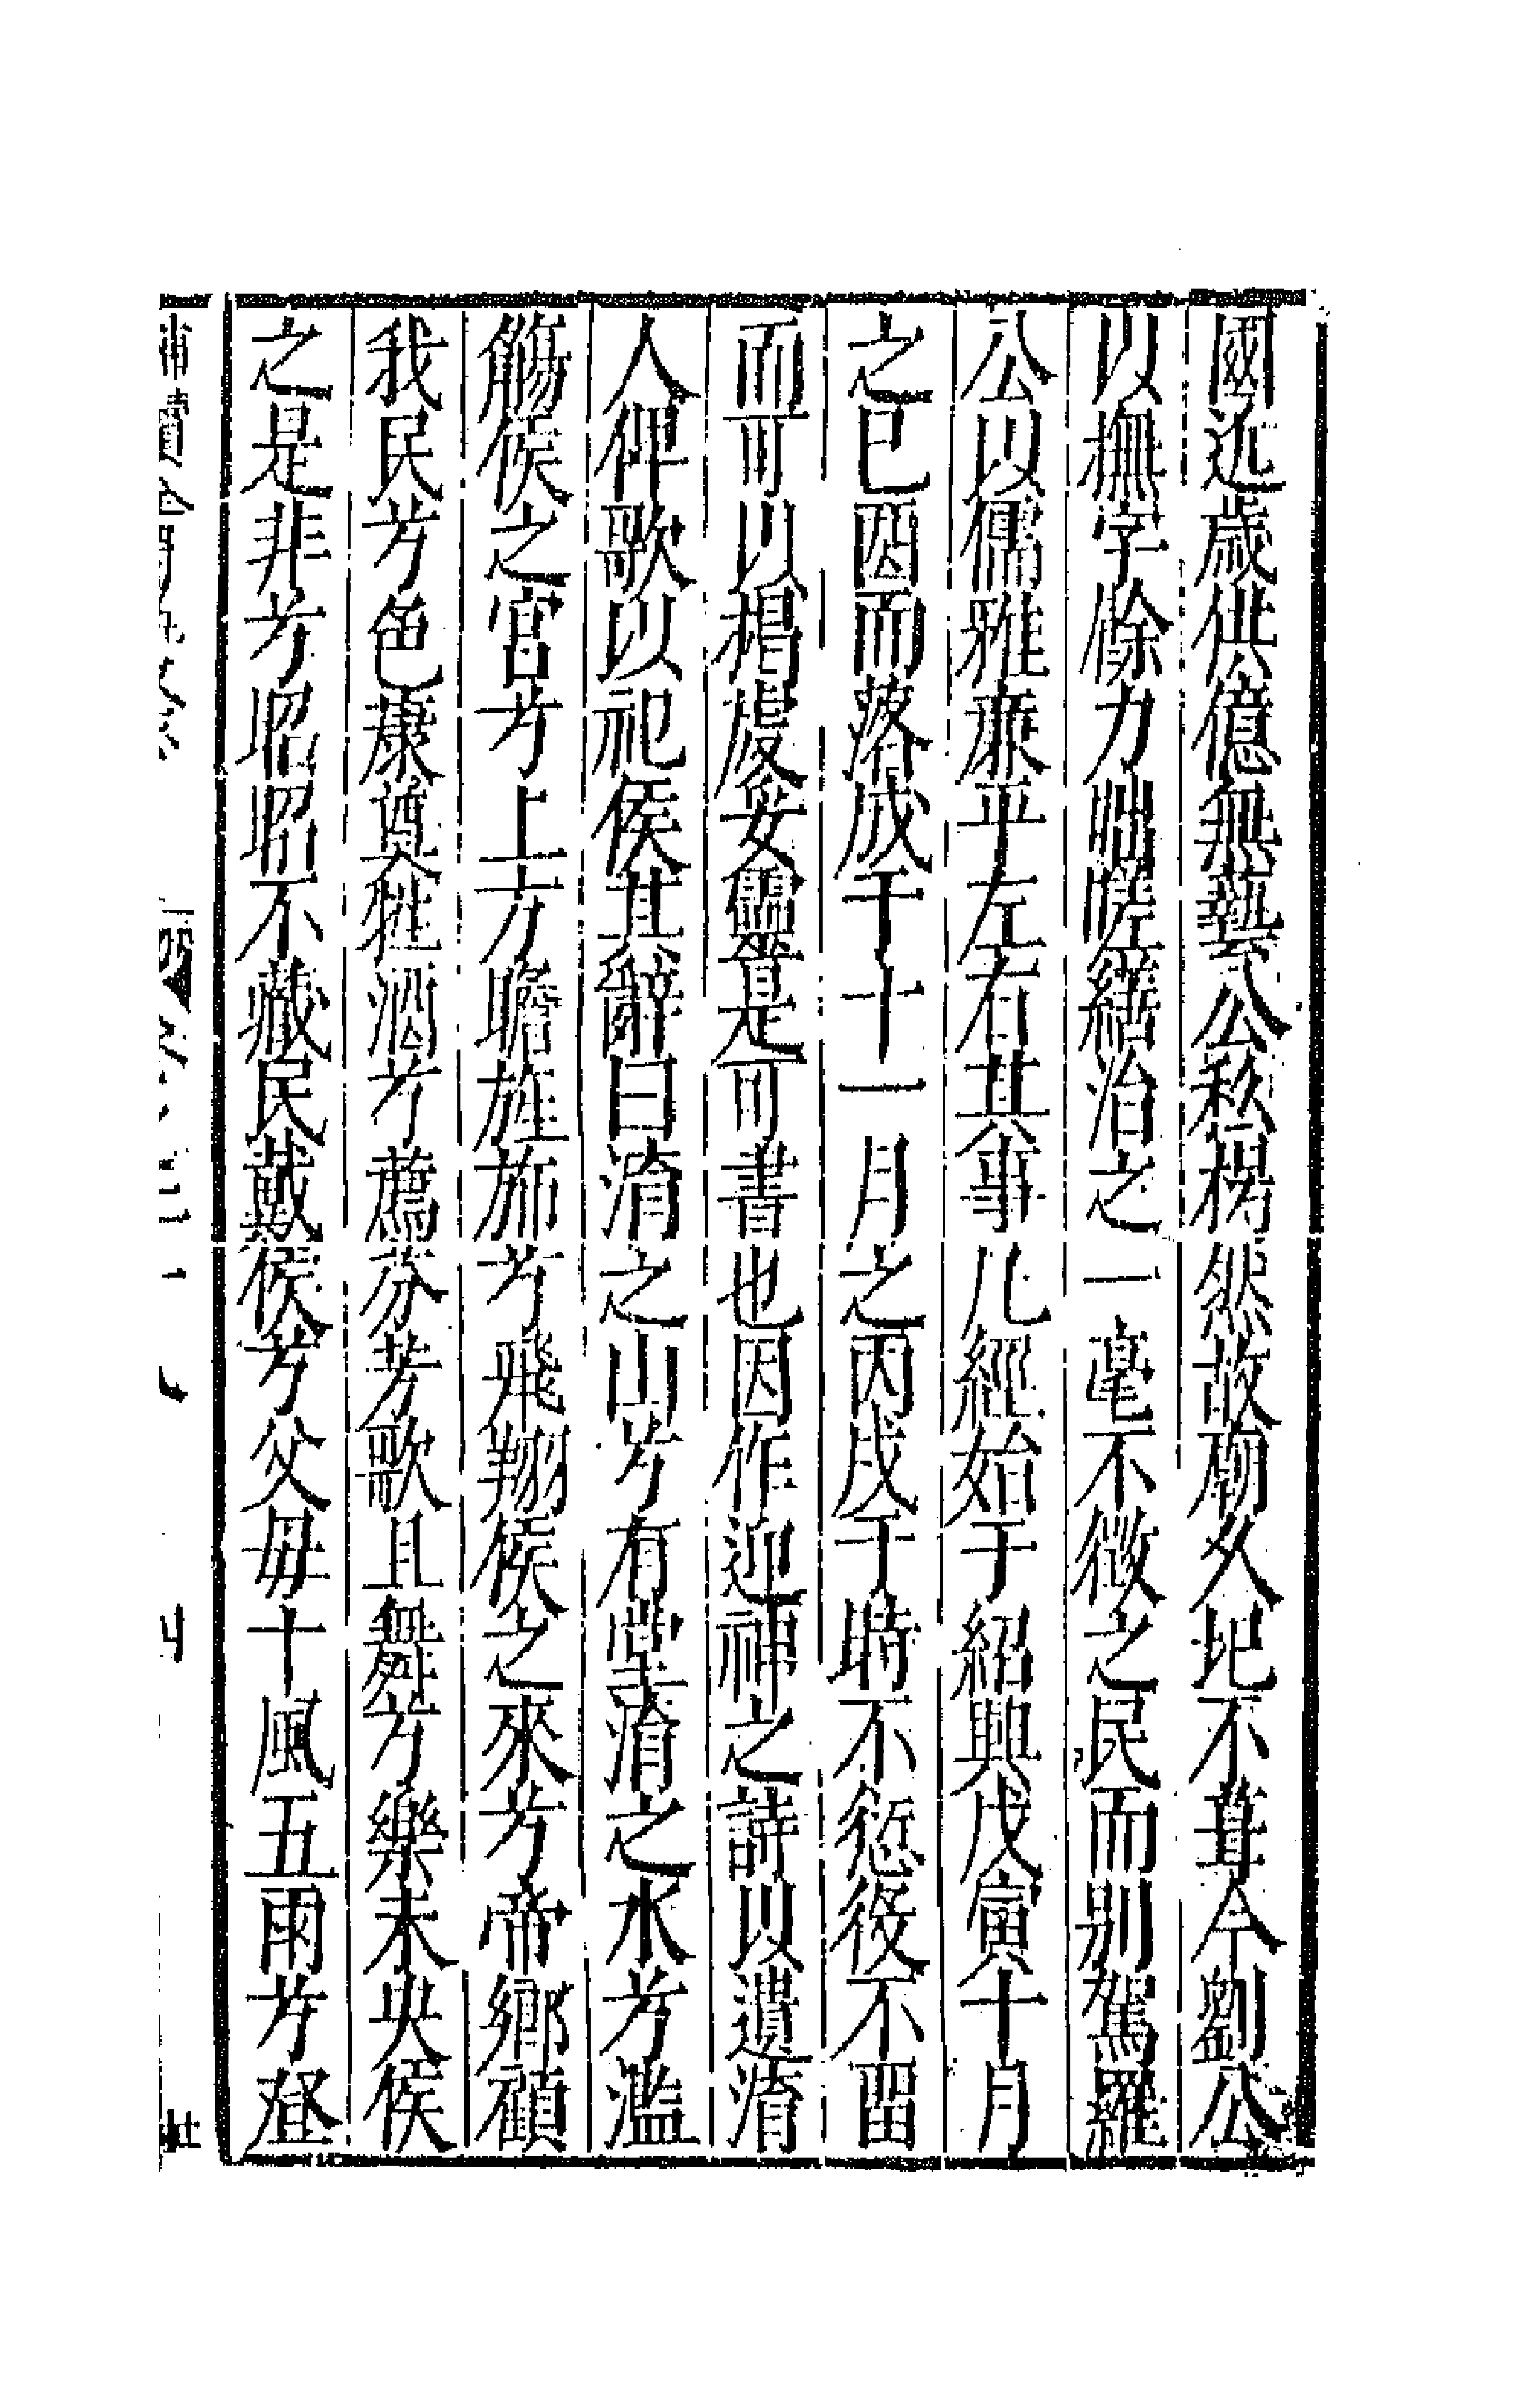 國近歲供億無藝公私枵然故廟久圮不葺今劉公
以撫字餘力慨嗟繕治之一毫不徵之民而别駕羅
公以儒雅廉平左右其事凡經始于紹興戊寅十月
之已酉而落成于十一月之丙戌于時不愆役不留
而可以揭虔妥靈是可書也因作迎神之詩以遺淯
人俾歌以祀侯其辭曰淯之山兮有堂淯之水兮濫
觴侯之宮兮上方瞻旌斾兮飛翔侯之來兮帝鄉顧
我民兮色康奠牲酒兮薦芬芳歌且舞兮樂未央侯
之是非兮昭昭不藏民戴侯兮父母十風五雨兮登